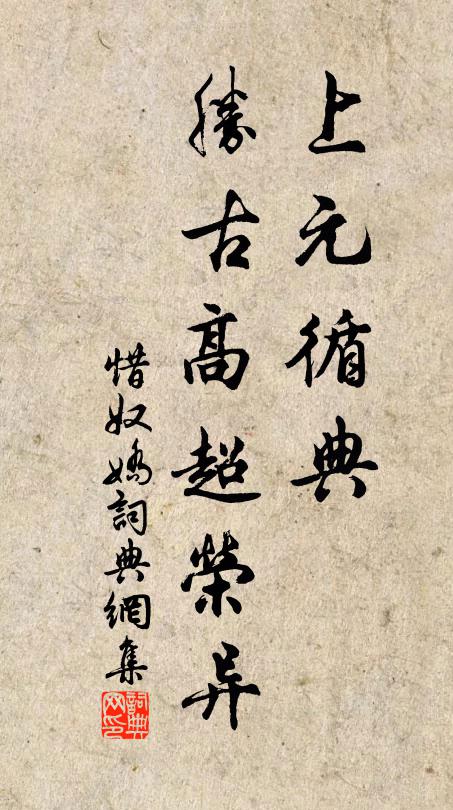 上元循典
勝古高超榮异
惜奴嬌詞典網集
詞典
网印